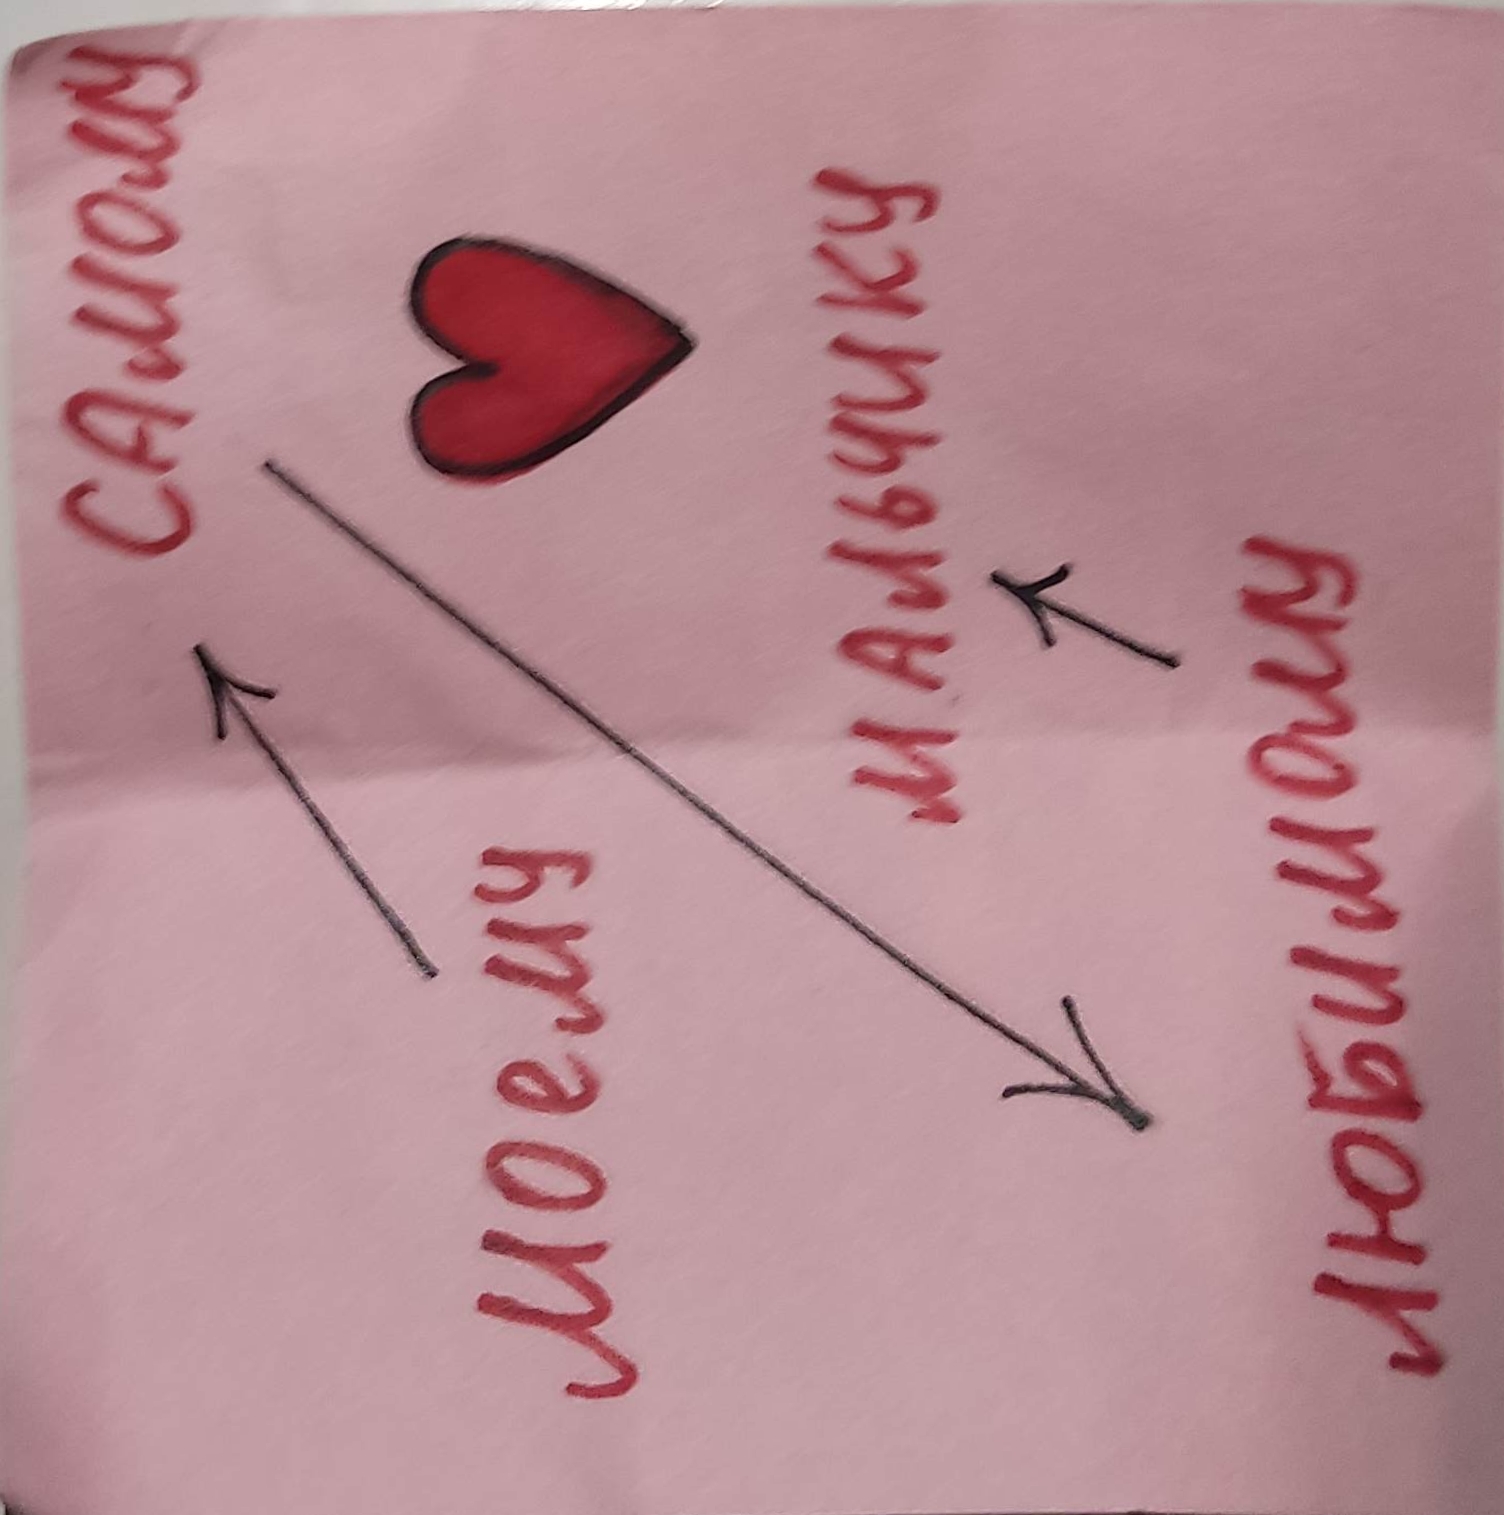 моему
САМОМУ
ЛЮБИМОМУ
МАЛЬЧИКУ